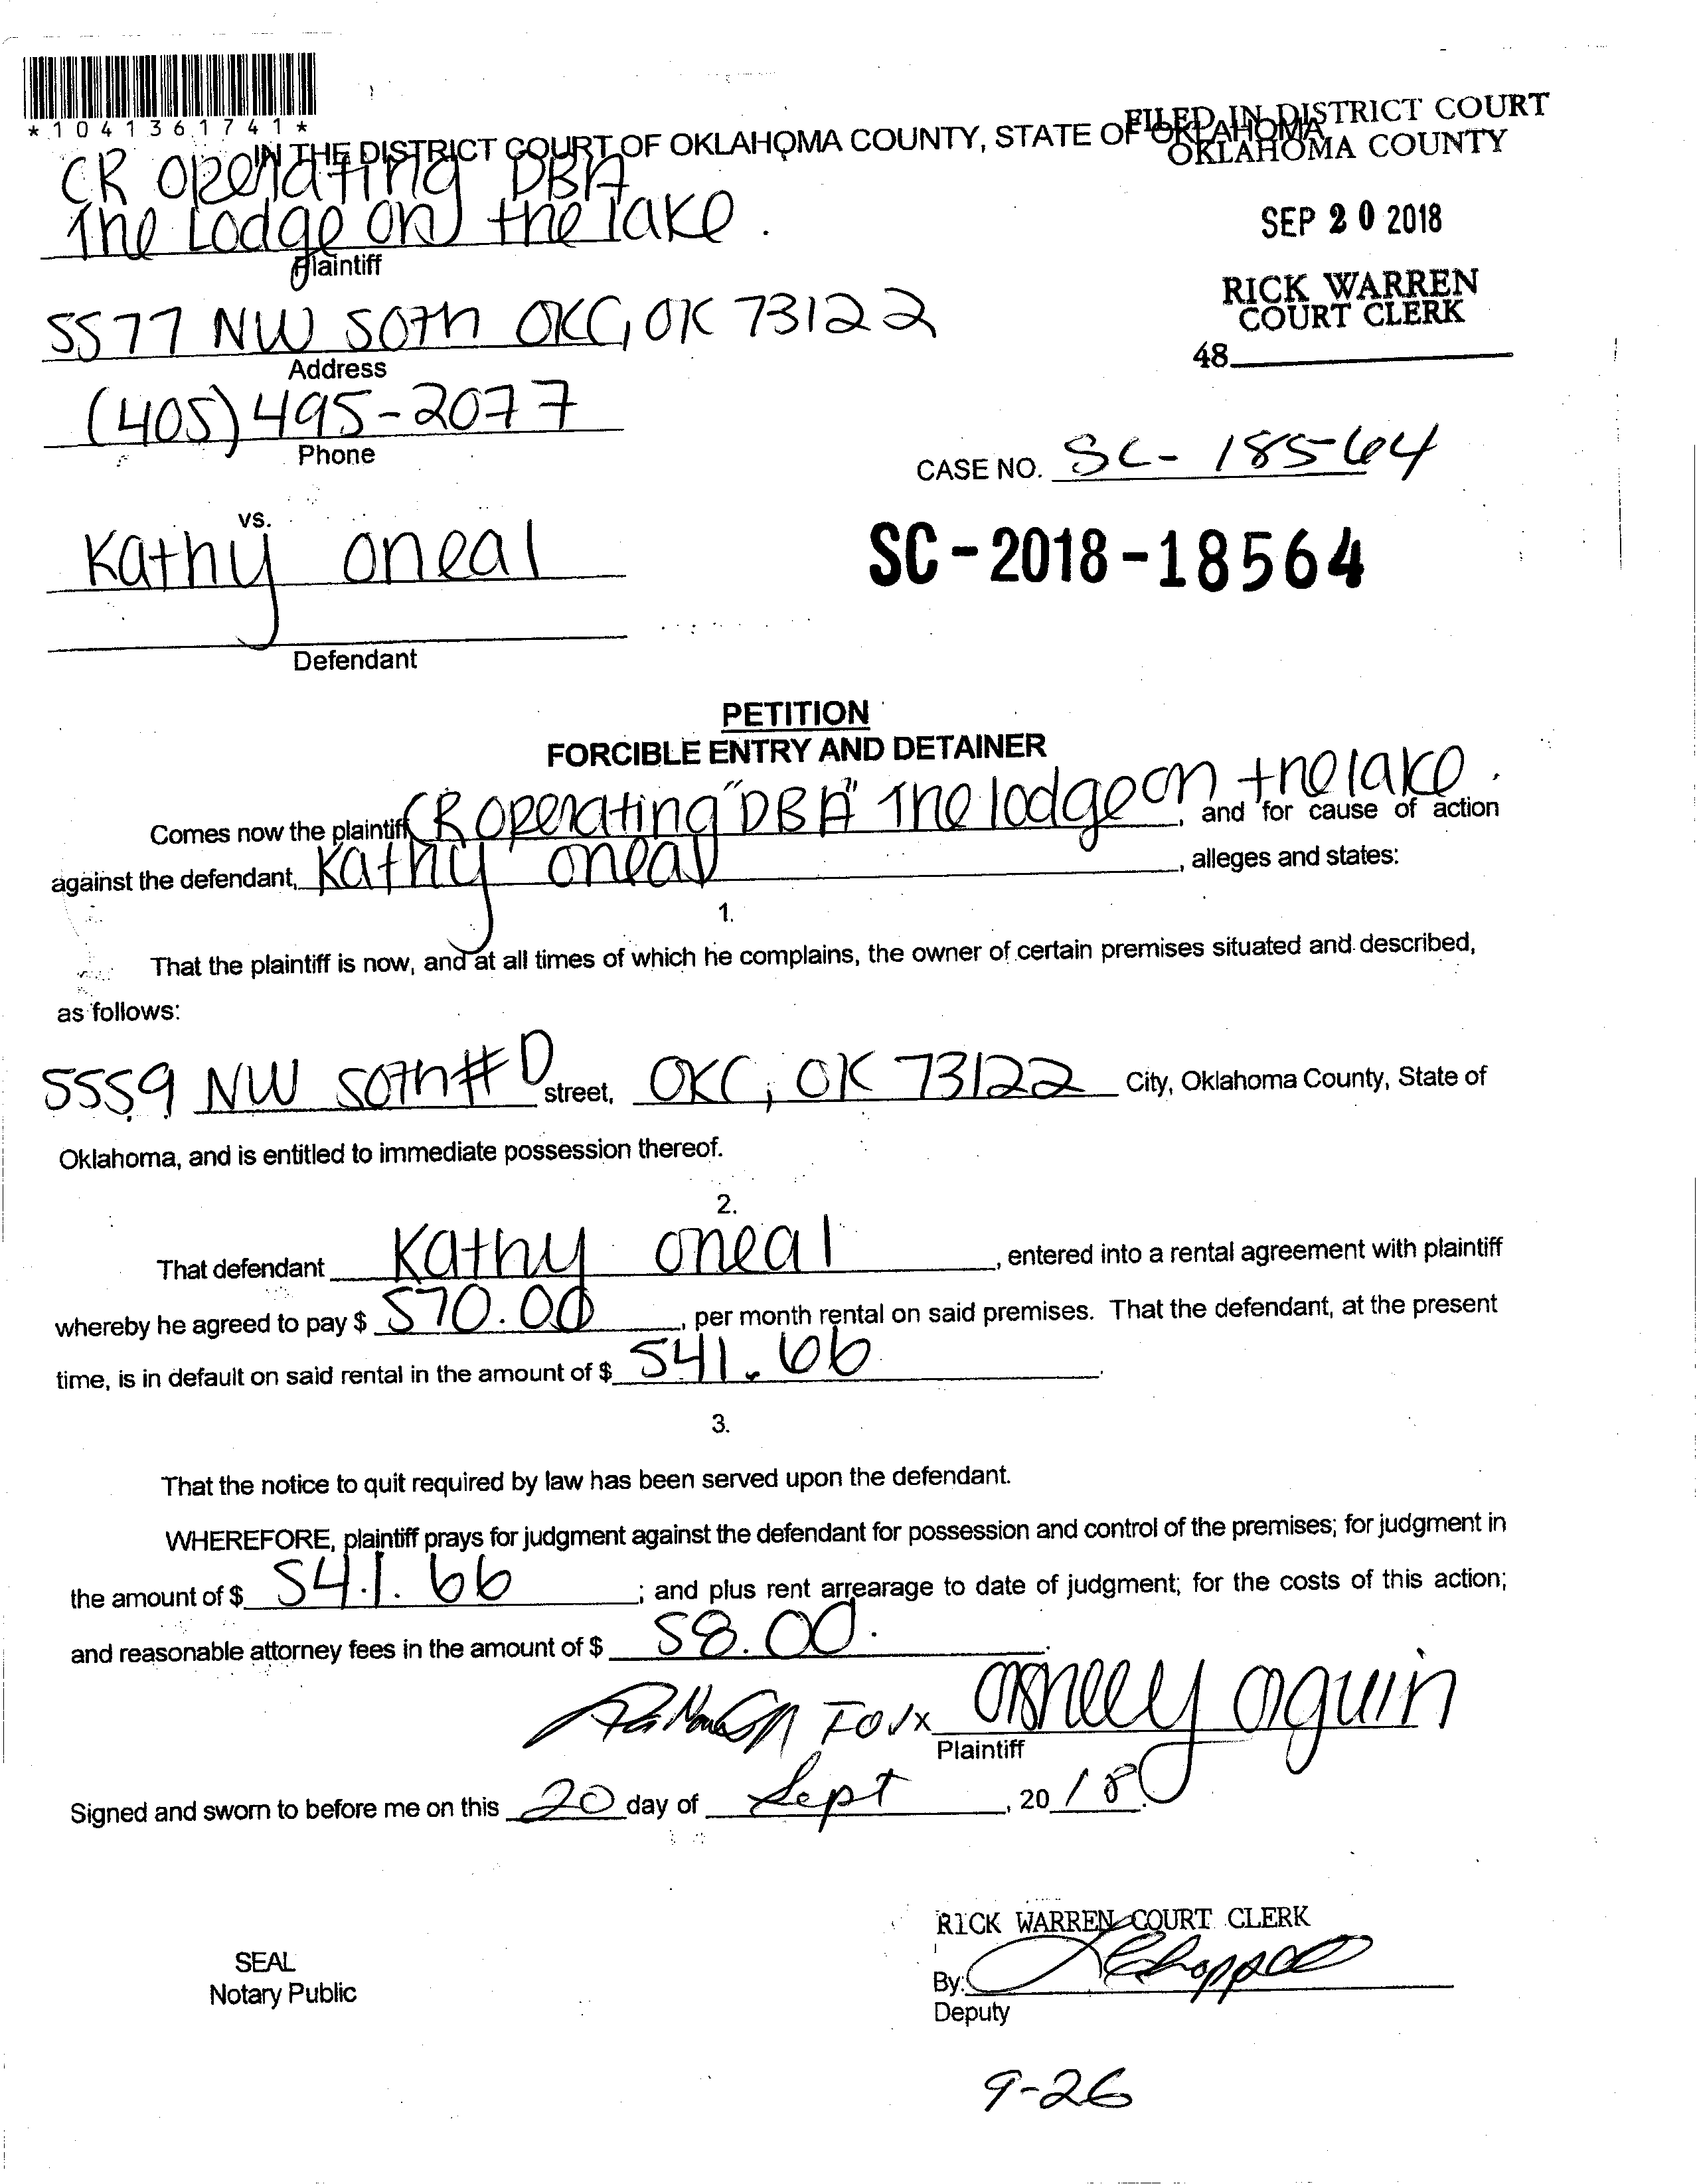 *1041361741*
IN THE DISTRICT COURT OF OKLAHOMA COUNTY, STATE OF OKLAHOMA
FILED IN DISTRICT COURT
OKLAHOMA COUNTY
CR Operating DBA
The Lodge on the lake.
Plaintiff
SEP 20 2018
RICK WARREN
COURT CLERK
48
5577 NW 50th OKC, OK 73122
Address
(405) 495-2077
Phone
CASE NO. SC- 18564
vs.
Kathy oneal
SC-2018-18564
Defendant
PETITION
FORCIBLE ENTRY AND DETAINER
Comes now the plaintiff CR Operating "DBA" The lodge on the lake., and for cause of action
against the defendant, Kathy oneal, alleges and states:
1.
That the plaintiff is now, and at all times of which he complains, the owner of certain premises situated and described,
as follows:
5559 NW 50th #D street, OKC, OK 73122 City, Oklahoma County, State of
Oklahoma, and is entitled to immediate possession thereof.
2.
That defendant Kathy oneal, entered into a rental agreement with plaintiff
whereby he agreed to pay $ 570.00, per month rental on said premises. That the defendant, at the present
time, is in default on said rental in the amount of $ 541.66.
3.
That the notice to quit required by law has been served upon the defendant.
WHEREFORE, plaintiff prays for judgment against the defendant for possession and control of the premises; for judgment in
the amount of $ 541.66; and plus rent arrearage to date of judgment; for the costs of this action;
and reasonable attorney fees in the amount of $ 58.00.
Ashley Oguin
Plaintiff
Signed and sworn to before me on this 20 day of Sept, 2018.
RICK WARREN COURT CLERK
SEAL
Notary Public
By:
Deputy
9-26